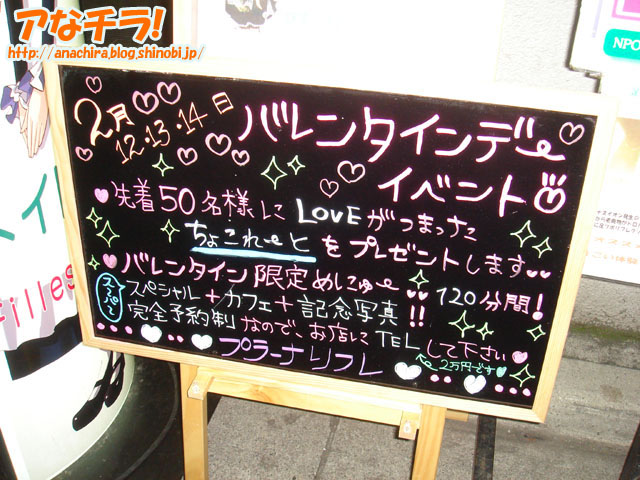 アなチラ!
http://anachira.blog.shinobi.jp/
NPO
2月12.13.14日
バレンタインデー
イベント
先着50名様に LOVEがつまった
ちょこれーとをプレゼントします
バレンタイン限定めにゅー 120分間!
スーパースペシャル+カフェ+記念写真!!
完全予約制なので、お店にTELして下さい
2万円です
プラーナリフレ
filles